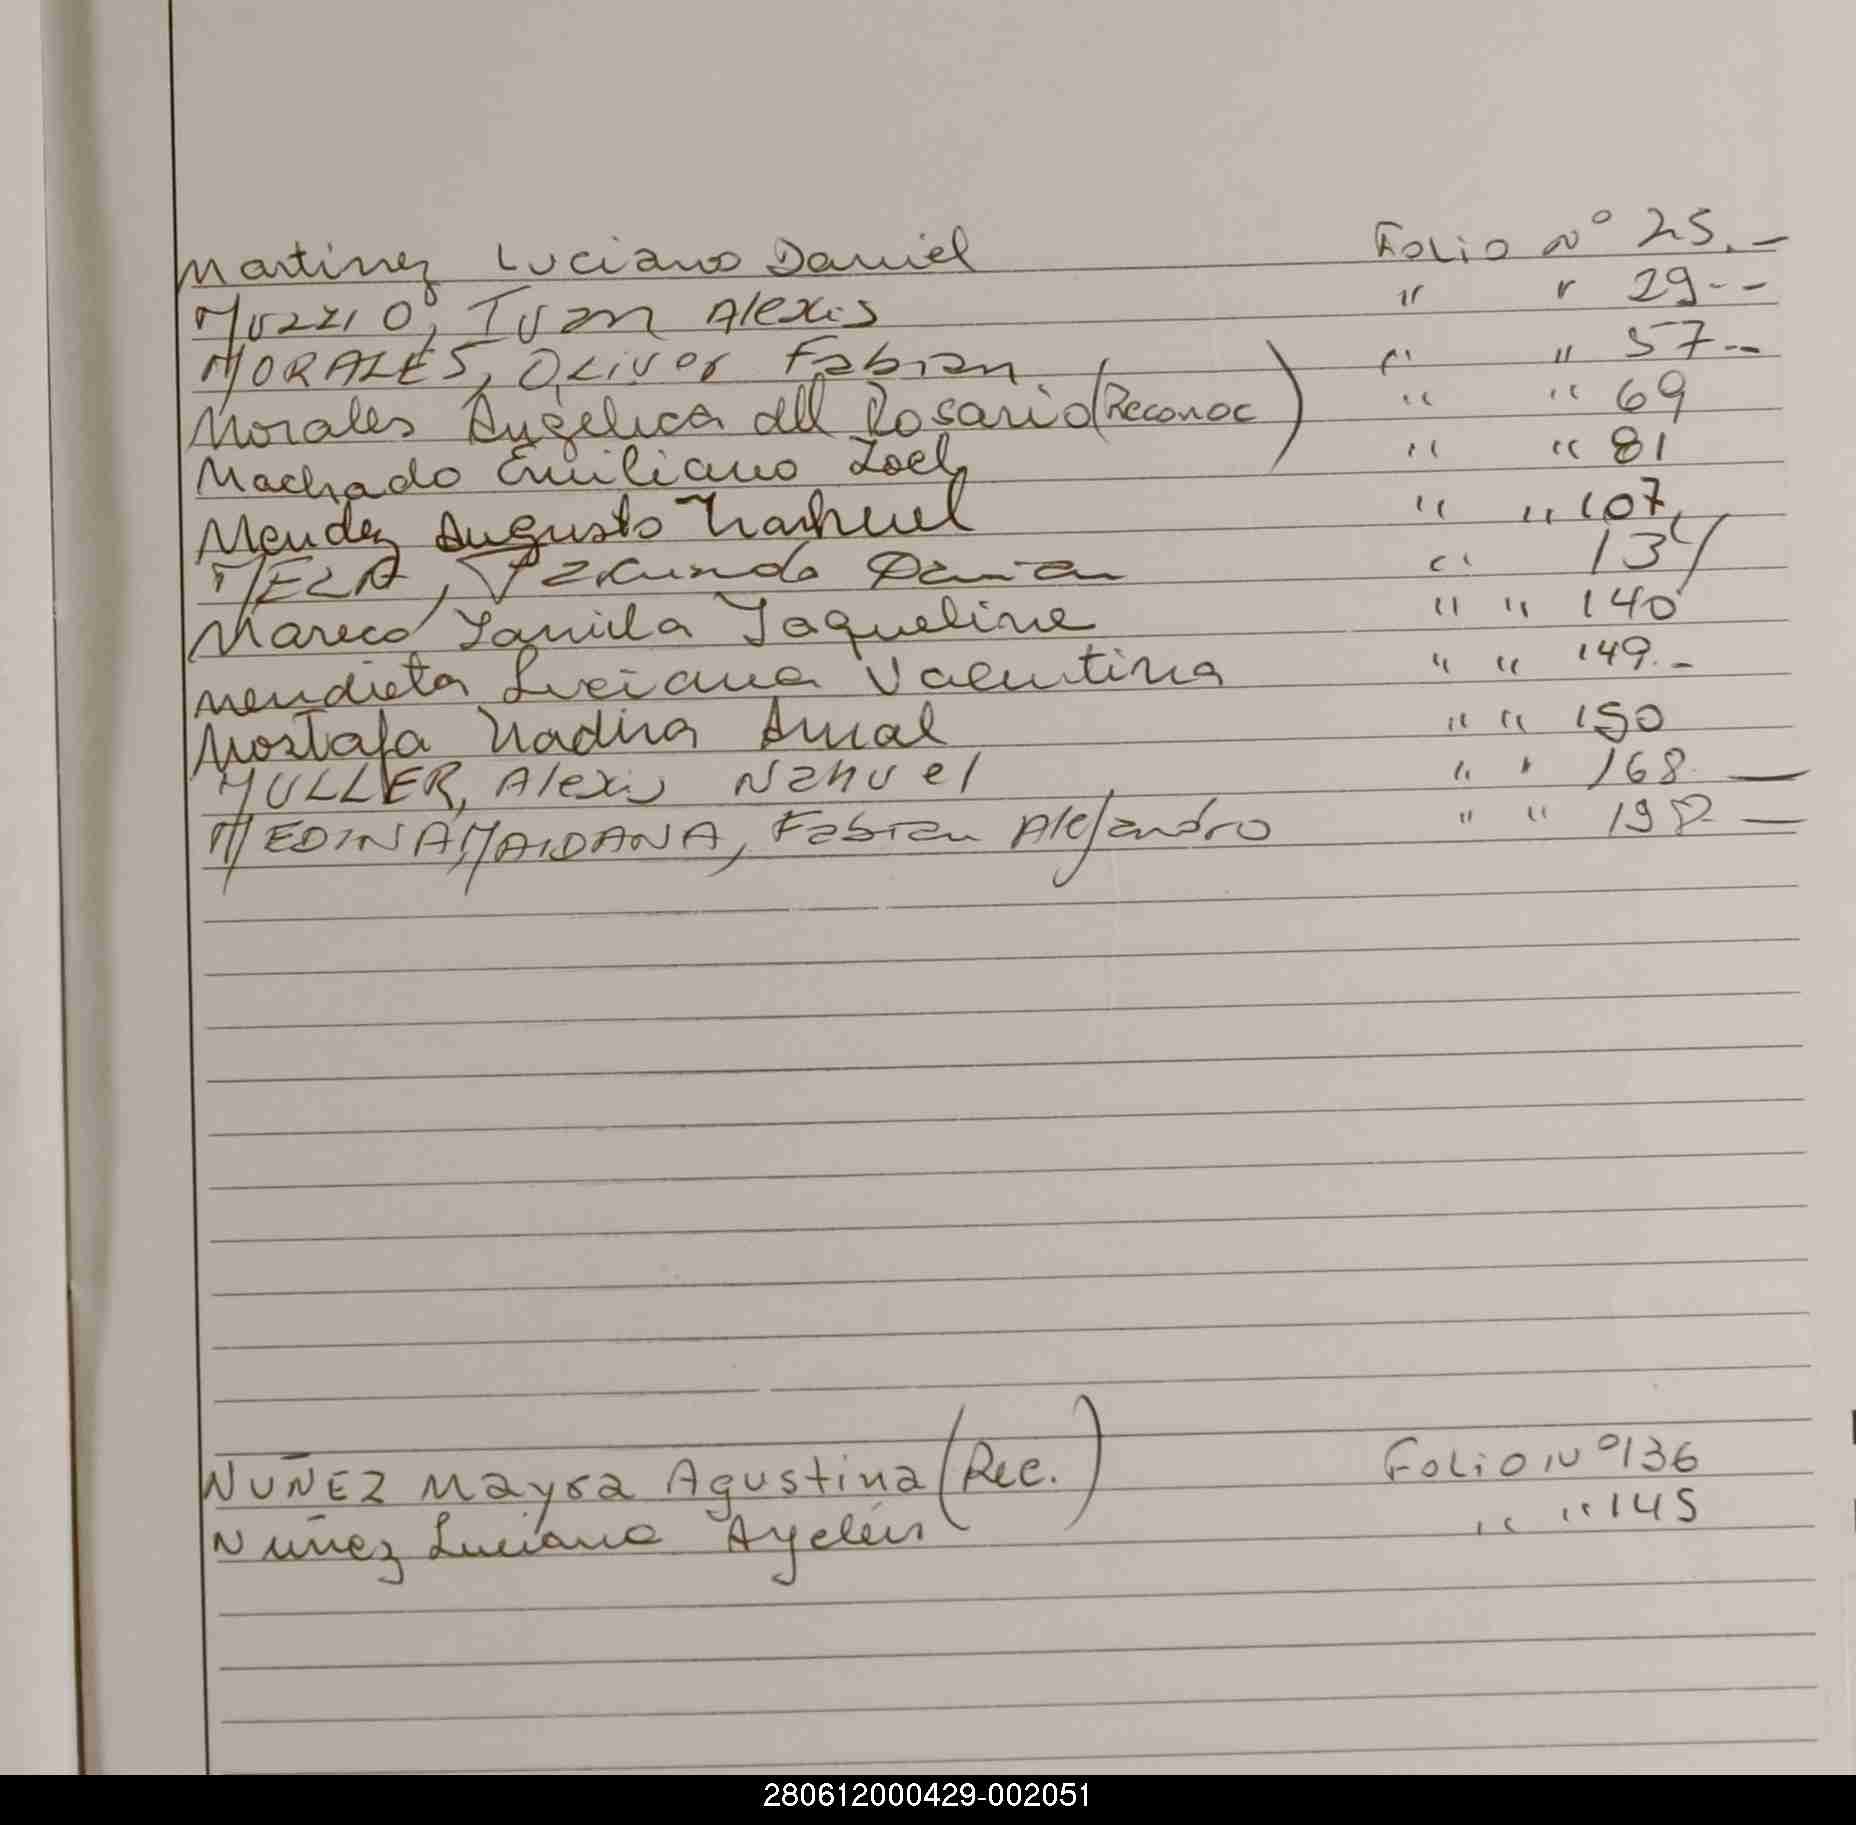 Martinez Luciano Daniel Folio Nº 25.-
MUZZIO, Ivan Alexis " " 29--
MORALES, OLiver Fabian " " 57--
Morales Angélica del Rosario (Reconoc) " " 69
Machado Emiliano Joel " " 81
Mendez Augusto Nahuel " " 107
MEZA, Facundo Damian " 134
Mareco Yamila Jaqueline " " 140
Mendieta Luciana Valentina " " 149.-
Mostafa Nadira Amal " " 150
MULLER, Alexis Nahuel " " 168 —
MEDINA MAIDANA, Fabian Alejandro " " 198 —
NUÑEZ Mayra Agustina (Rec.) Folio Nº 136
Nuñez Luciana Ayelén " " 145
280612000429-002051